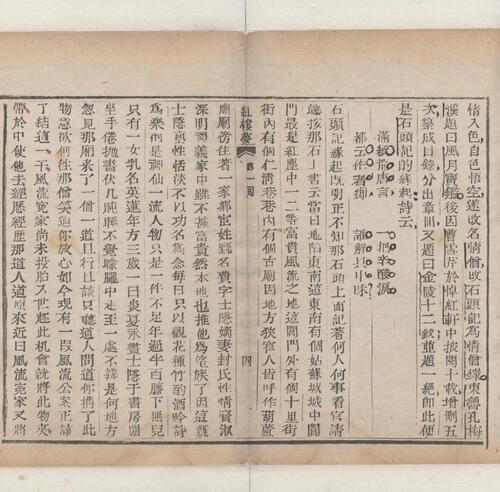 情入色自色悟空遂改名情僧改石頭記爲情僧錄東魯孔梅
溪題曰風月寶鑑後因曹雪芹於悼紅軒中披閱十載增刪五
次纂成目錄分出章回又題曰金陵十二釵並題一絕卽此便
是石頭記的緣起詩云
滿紙荒唐言　一把辛酸淚
都云作者痴　誰解其中味
石頭記緣起旣明正不知那石頭上面記著何人何事看官請
聽按那石上書云當日地陷東南這東南有個姑蘇城城中閶
門最是紅塵中一二等富貴風流之地這閶門外有個十里街
街內有個仁清巷巷內有個古廟因地方狹窄人皆呼作葫蘆
紅樓夢　第一回　四
廟廟傍住著一家鄉宦姓甄名費字士隱嫡妻封氏性情賢淑
深明禮義家中雖不甚富貴然本地也推他爲望族了因這甄
士隱稟性恬淡不以功名爲念每日只以觀花種竹酌酒吟詩
爲樂倒是神仙一流人物只是一件不足年過半百膝下無兒
只有一女乳名英蓮年方三歲一日炎夏永晝士隱于書房閒
坐手倦拋書伏几盹睡不覺朦朧中走至一處不辨是何地方
忽見那廂來了一僧一道且行且談只聽道人問道你攜了此
物意欲何往那僧笑道你放心如今現有一段風流公案正該
了結這一干風流冤家尚未投胎入世趁此機會就將此物夾
帶於中使他去經歷經歷那道人道原來近日風流冤家又將